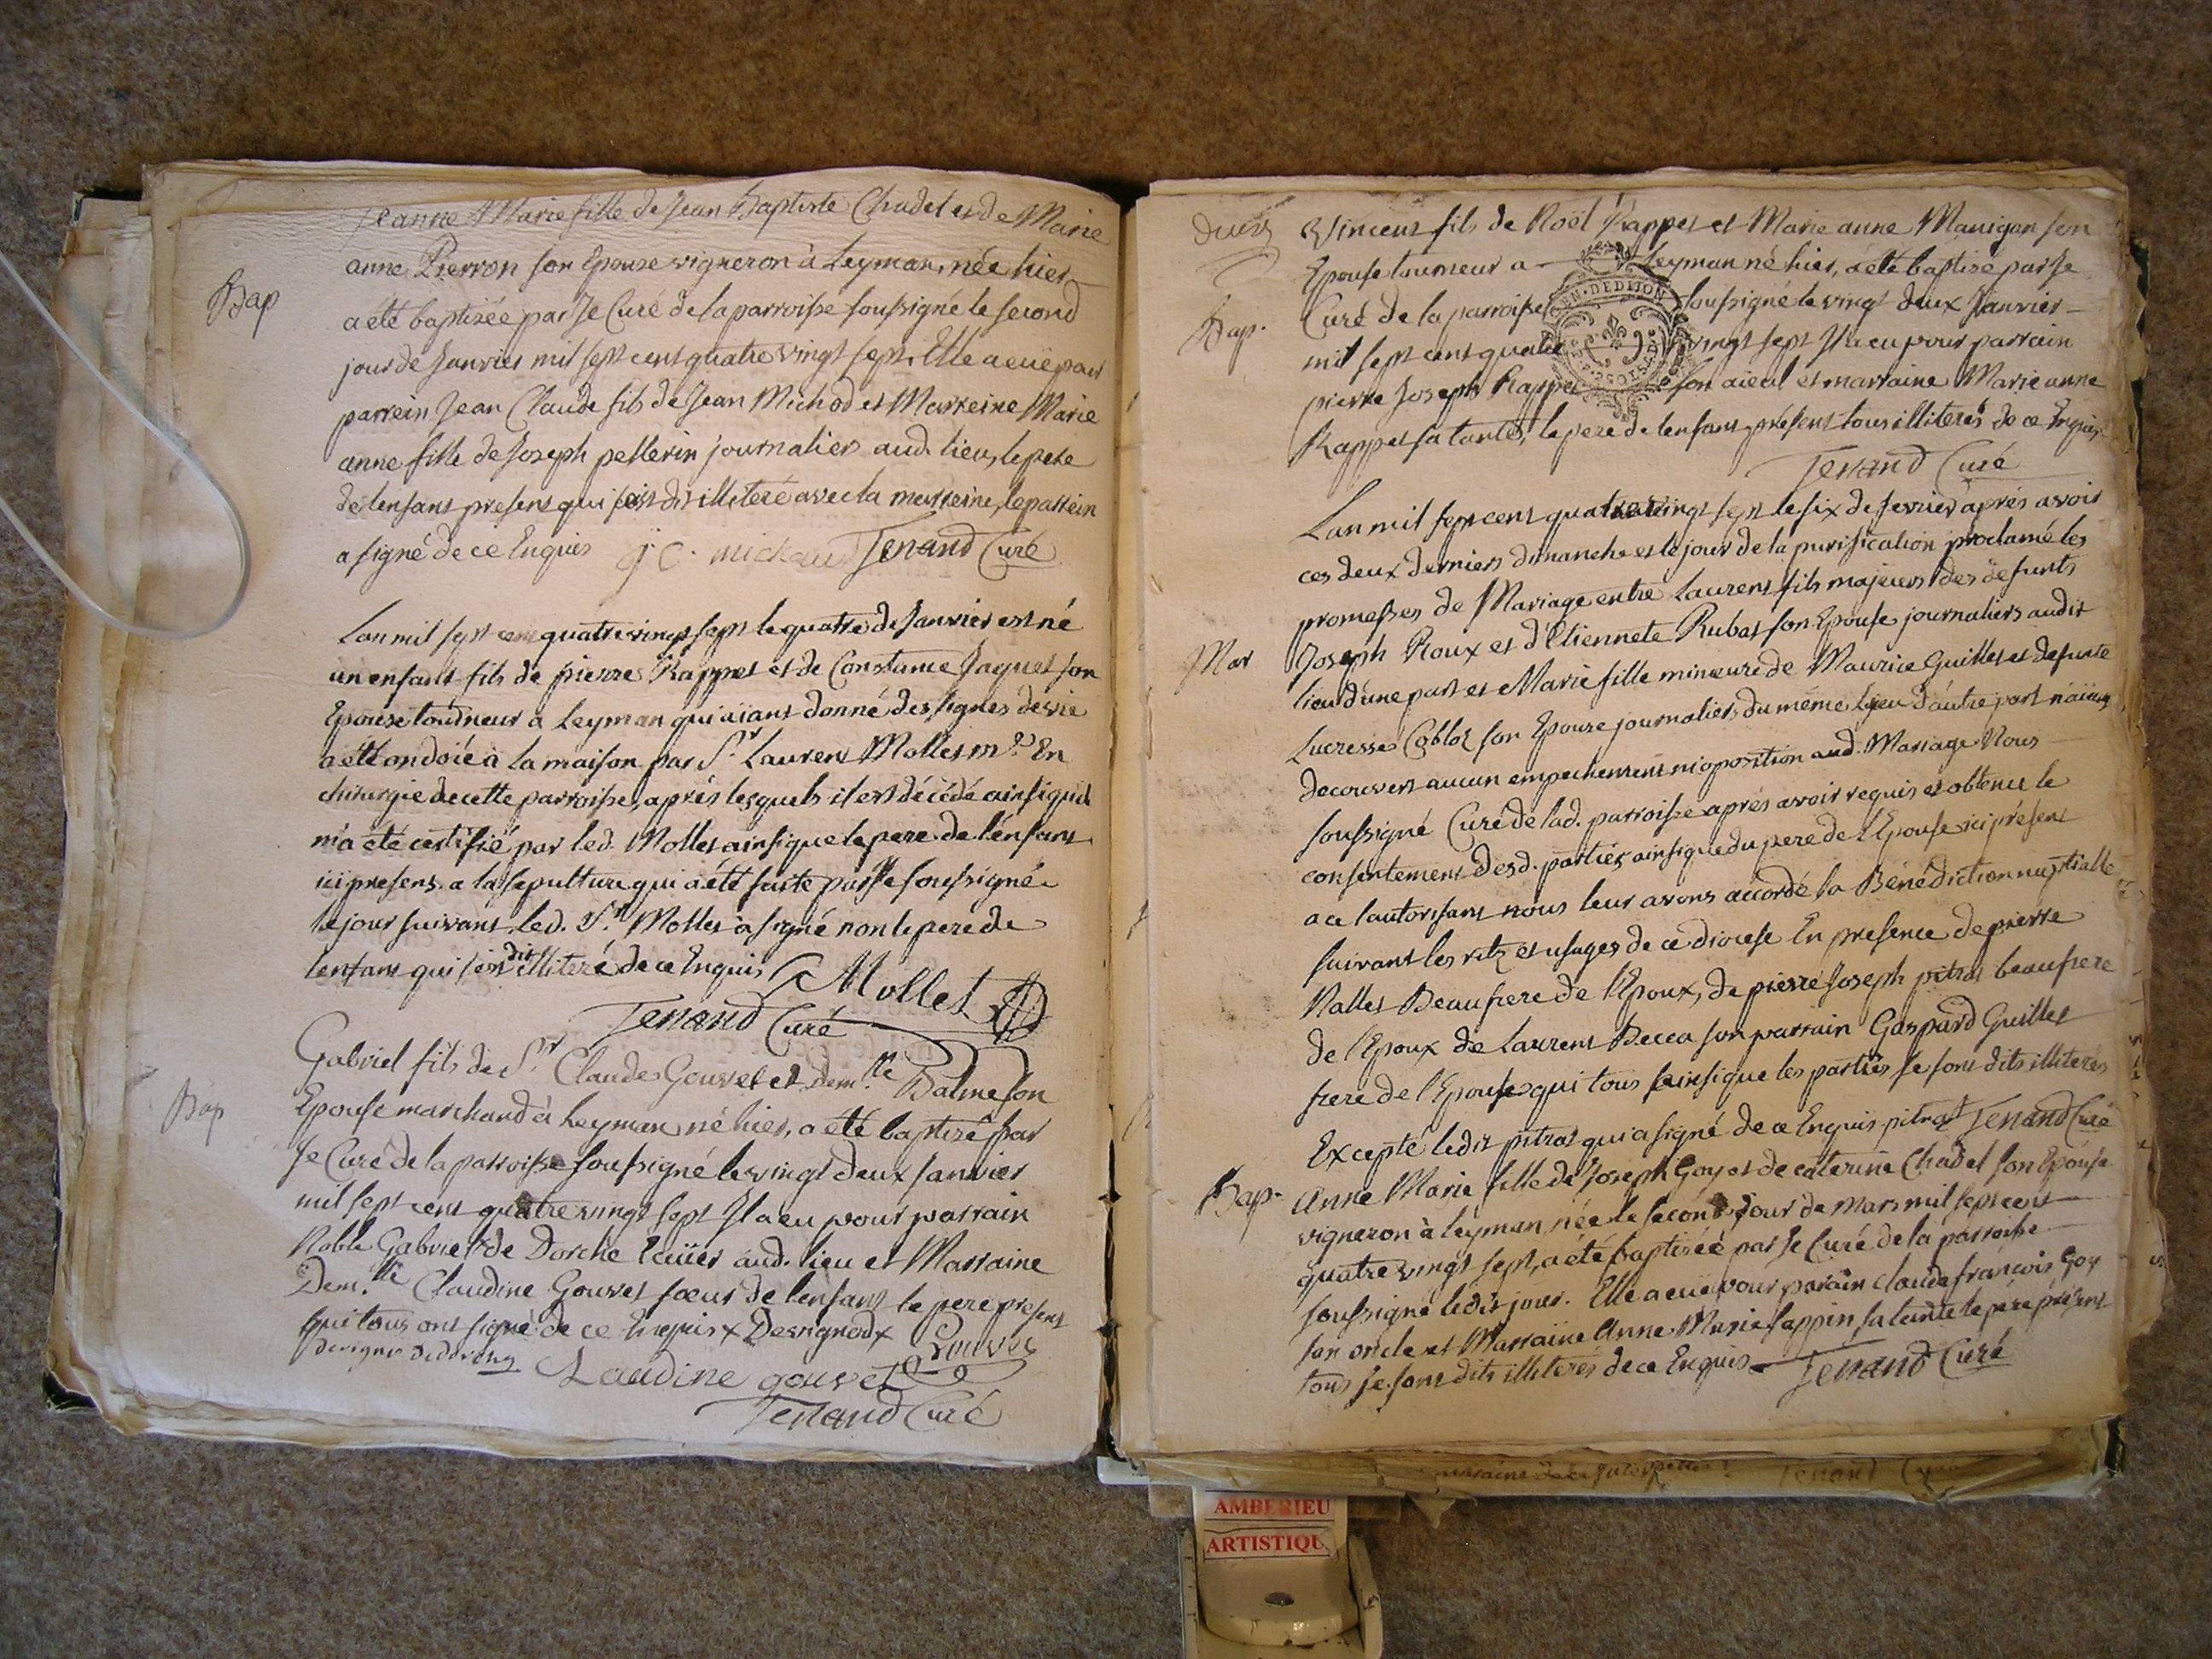 Jeanne Marie fille de Jean Baptiste Chadel et de Marie
anne Pierron son Epouse vigneron à Leyman, née hier
Bap
a été baptisée par Je Curé de la parroisse soussigné le second
jour de Janvier mil sept cent quatre vingt sept. Elle a eüe pour
parrein Jean Claude fils de Jean Michod et Marreine Marie
anne fille de Joseph pellerin journalier aud. lieu, le pere
de lenfant present qui sest dit illiteré avec la marreine, le parrein
a signé de ce Enquis j c. michaud Tenand Curé
Lan mil sept cent quatre vingt sept le quatre de Janvier est né
un enfant fils de pierre Rappet et de Constance Jaquet son
Epouse tourneur a Leyman qui aïant donné des signes de vie
a été ondoié à la maison par Sr. Laurent Mollet me. En
chirurgie de cette parroisse, aprés lesquels il est décédé ainsi quil
m'a été certifié par led. Mollet ainsi que le pere de l'enfant
ici present. a la sepulture qui a été faite par Je soussigné
le jour suivant. led. Sr. Mollet à signé non le pere de
lenfant qui sest dit illiteré de ce Enquis Mollet
Tenand Curé
Gabriel fils de Sr. Claude Gouvet et Demlle. Balme son
Bap
Epouse marchand à Leyman né hier, a été baptisé par
Je Curé de la parroisse soussigné le vingt deux Janvier
mil sept cent quatre vingt sept Il a eu pour parrain
Noble Gabriel de Dorche Ecuïer aud. lieu et Marraine
Demlle. Claudine Gouvet sœur de lenfant le pere present
qui tous ont signé de ce Enquis x x Gouvet
Claudine gouvet
Tenand Curé
Vincent fils de Noël Rappet et Marie anne Manigan son
Epouse tourneur a Leyman né hier, a été baptisé par Je
Bap.
Curé de la parroisse soussigné le vingt deux Janvier
GEN. DE DIJON
mil sept cent quatre vingt sept Il a eu pour parrain
pierre Joseph Rappet son aïeul et marraine Marie anne
Rappet sa tante, le pere de lenfant présent tous illiterés de ce Enquis
Tenand Curé
Lan mil sept cent quatre vingt sept le six de fevrier aprés avoir
ces deux derniers dimanche et le jour de la purification proclamé les
promesses de Mariage entre Laurent fils majeur des defunts
Mar
Joseph Roux et d'Etiennete Rubat son Epouse journaliers audit
lieu d'une part et Marie fille mineure de Maurice Guillet et defunte
Lucresse Cobloz son Epouse journaliers du même lieu d'autre part n'aïant
decouvert aucun empechement ni oposition aud. Mariage Nous
soussigné Curé de lad. parroisse aprés avoir requis et obtenu le
consentement desd. parties ainsi que du pere de l'Epouse ici présent
a ce l'autorisant nous leur avons accordé la Bénédiction nuptialle
suivant les ritz et usages de ce diocese En presence de pierre
Nallet Beaufrere de l'Epoux, de pierre Joseph pitrat beaufrere
de l'Epoux de Laurent Becca son parrain Gaspard Guillet
frere de l'Epouse qui tous ainsi que les parties se sont dits illiterés
Excepté ledit pitrat qui a signé de ce Enquis pitrat Tenand Curé
Bap.
Anne Marie fille de Joseph Goy et de caterine Chadel son Epouse
vigneron à Leyman née le second jour de Mars mil sept cent
quatre vingt sept, a été baptisée par Je Curé de la parroisse
soussigné ledit jour. Elle a eüe pour parain Claude françois Goy
son oncle et Marraine Anne Marie Sappin sa tante le pere présent
tous se sont dits illiterés de ce Enquis Tenand Curé
Tenand
AMBERIEU
ARTISTIQU